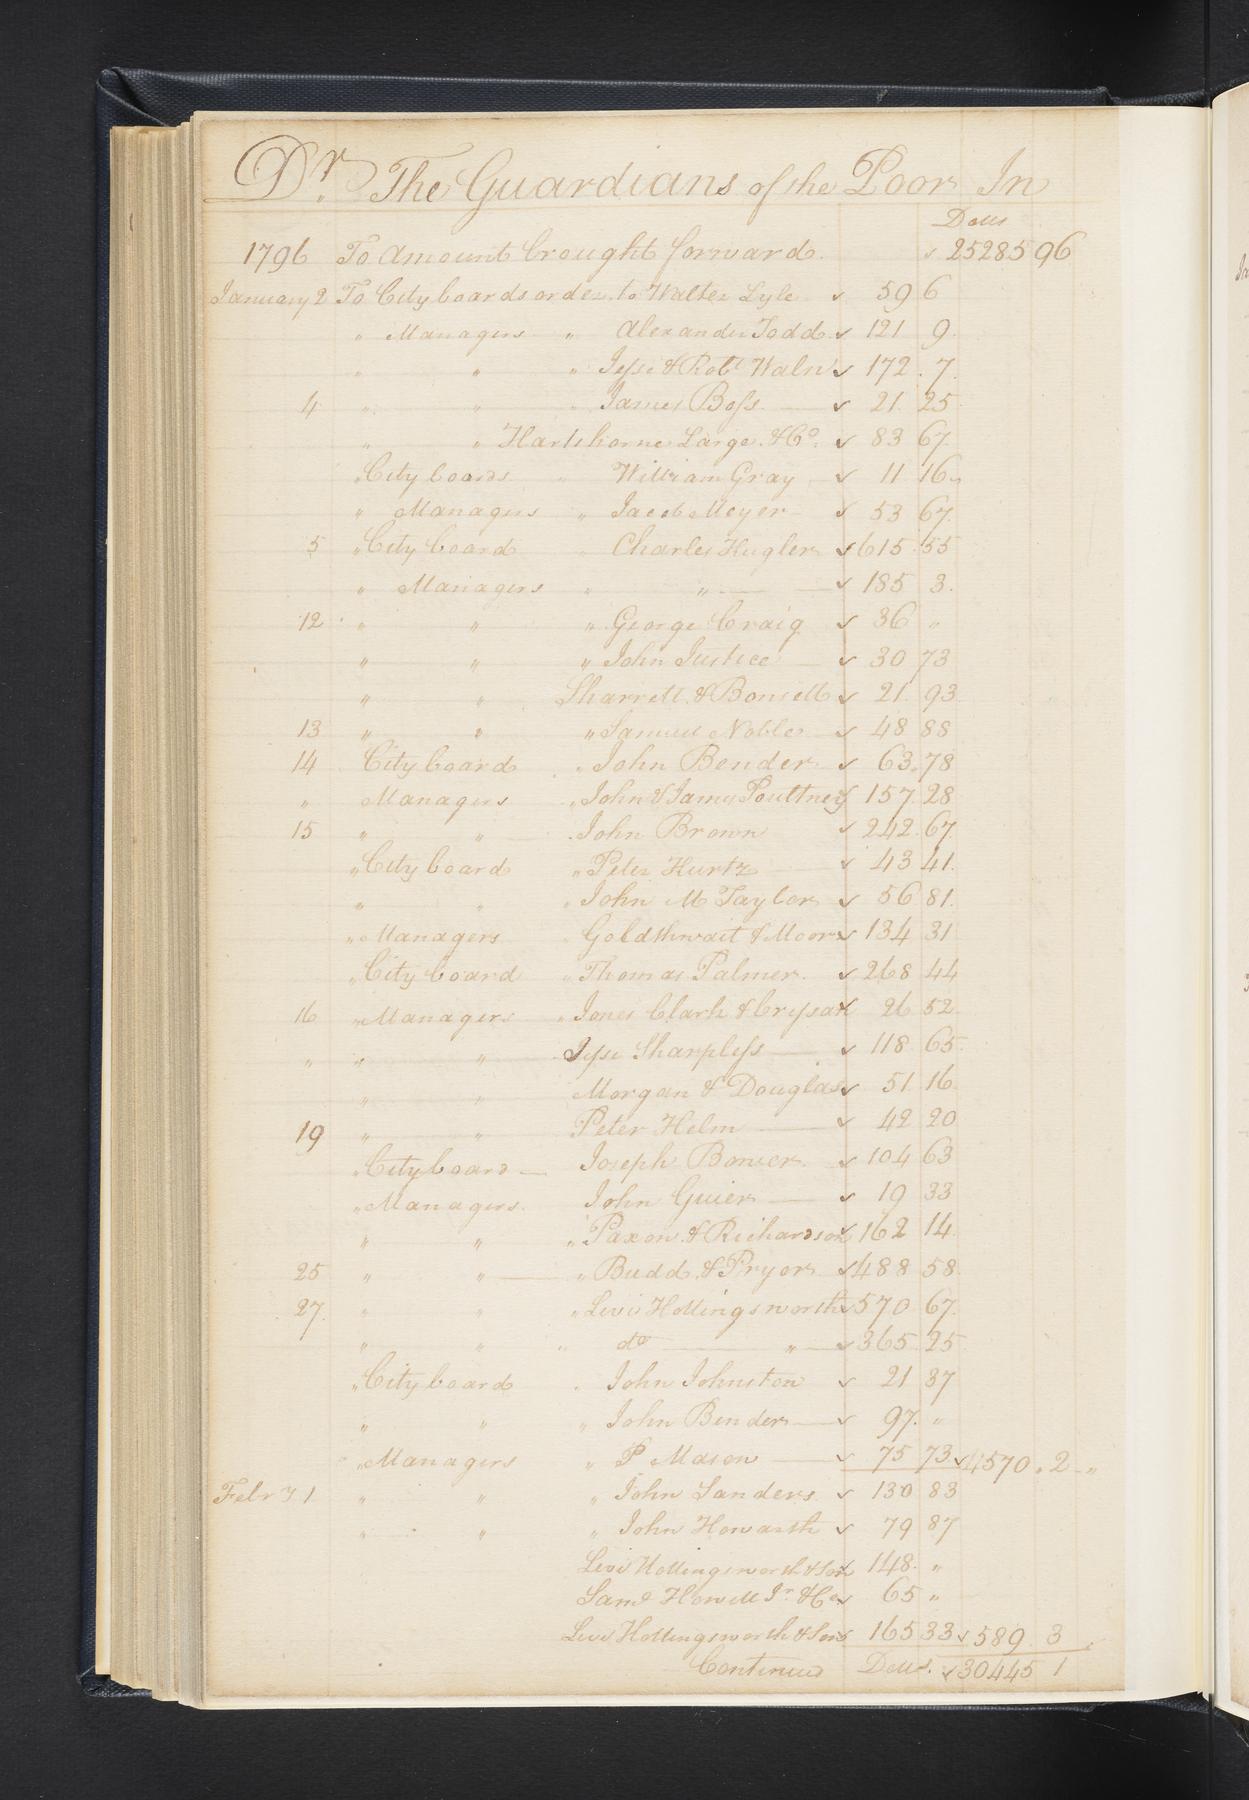 Dr. The Guardians of the Poor In
Dolls
1796 To Amount brought forward. 25285 96
January 2 To City boards order to Walter Lyle 59 6
" Managers " Alexander Todd 121 9
" " " Jesse & Robt Waln 172 7
4 " " " James Boss 21 25
" " Hartshorne Large & Co. 83 67
" City boards " William Gray 11 16
" Managers " Jacob Meyer 53 67
5 " City board " Charles Hugler 615 55
" Managers " " 185 3
12 " " " George Craig 36 "
" " " John Justice 30 73
" " Sharrell & Bonsell 21 93
13 " " " Samuel Noble 48 88
14 City board " John Bender 63 78
" Managers " John & James Poultney 157 28
15 " " John Brown 242 67
" City board " Peter Kurtz 43 41
" " " John M Taylor 56 81
" Managers " Goldthwait & Moore 134 31
" City board " Thomas Palmer 268 44
16 " Managers " Jones Clark & 26 52
" " " Jesse Sharpless 118 65
" " Morgan & Douglas 51 16
19 " " Peter Helm 42 20
" City board Joseph Bowers 104 63
" Managers John Guier 19 33
" " " Paxon & Richardson 162 14
25 " " " Budd & Pryor 488 58
27 " " " Levi Hollingsworth 570 67
" " " do " 365 25
" City board " John Johnston 21 37
" " " John Bender 97 "
" Managers " P Mason 75 73 4570 " 2
Febry 1 " " " John Sanders 130 83
" " " John Howarth 79 87
Levi Hollingsworth & Son 148 "
Saml Howell Jr & Co 65 "
Levi Hollingsworth & Son 165 33 589 3
Continued Dolls. 30445 1